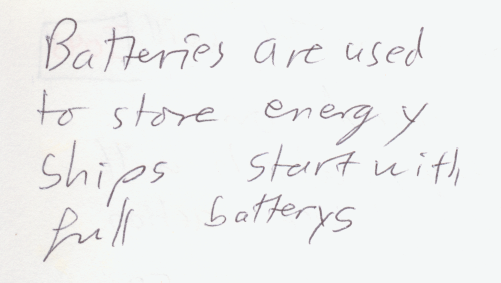 Batteries are used
to store energy
ships start with
full batterys